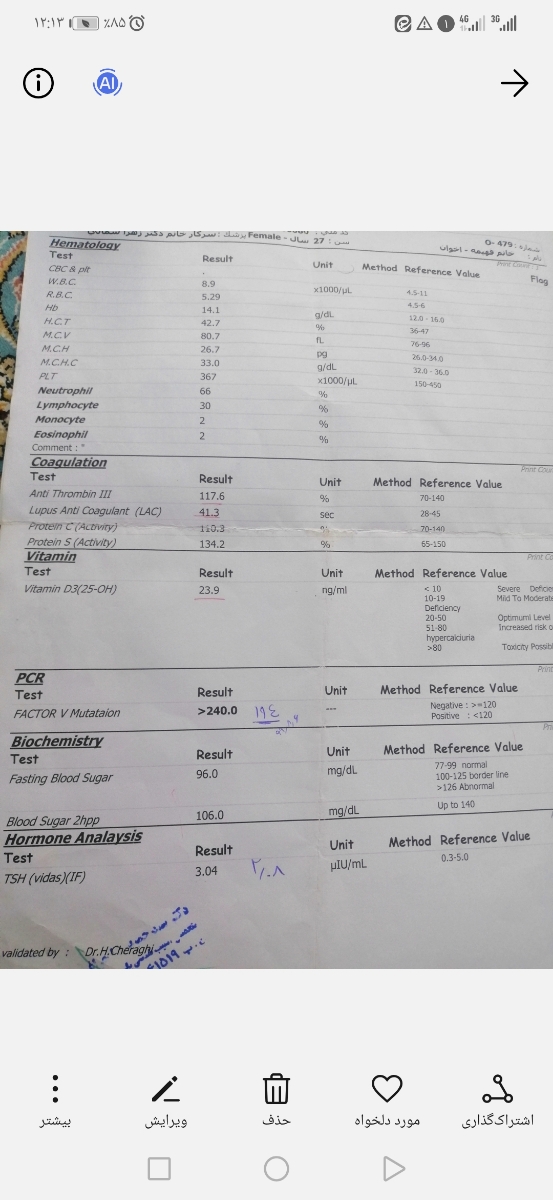 ۱۲:۱۳ ٪۸۵ 4G 3G
AI
Female - سن : 27 سال
شماره : 479-O
Hematology
Test Result Unit Method Reference Value Flag
CBC & plt
W.B.C. 8.9 x1000/µL 4.5-11
R.B.C. 5.29 4.5-6
Hb 14.1 g/dL 12.0 - 16.0
H.C.T 42.7 % 36-47
M.C.V 80.7 fL 76-96
M.C.H 26.7 pg 26.0-34.0
M.C.H.C 33.0 g/dL 32.0 - 36.0
PLT 367 x1000/µL 150-450
Neutrophil 66 %
Lymphocyte 30 %
Monocyte 2 %
Eosinophil 2 %
Comment : "
Coagulation
Test Result Unit Method Reference Value
Anti Thrombin III 117.6 % 70-140
Lupus Anti Coagulant (LAC) 41.3 sec 28-45
Protein C (Activity) 110.3 % 70-140
Protein S (Activity) 134.2 % 65-150
Vitamin
Test Result Unit Method Reference Value
Vitamin D3(25-OH) 23.9 ng/ml < 10 Severe
10-19 Mild To Moderate
Deficiency
20-50 Optimuml Level
51-80 Increased risk o
hypercalciuria
>80 Toxicity Possibl
PCR
Test Result Unit Method Reference Value
FACTOR V Mutataion >240.0 --- Negative : >=120
Positive : <120
Biochemistry
Test Result Unit Method Reference Value
Fasting Blood Sugar 96.0 mg/dL 77-99 normal
100-125 border line
>126 Abnormal
Blood Sugar 2hpp 106.0 mg/dL Up to 140
Hormone Analaysis
Test Result Unit Method Reference Value
TSH (vidas)(IF) 3.04 µIU/mL 0.3-5.0
validated by : Dr.H.Cheraghi
بیشتر ویرایش حذف مورد دلخواه اشتراک‌گذاری